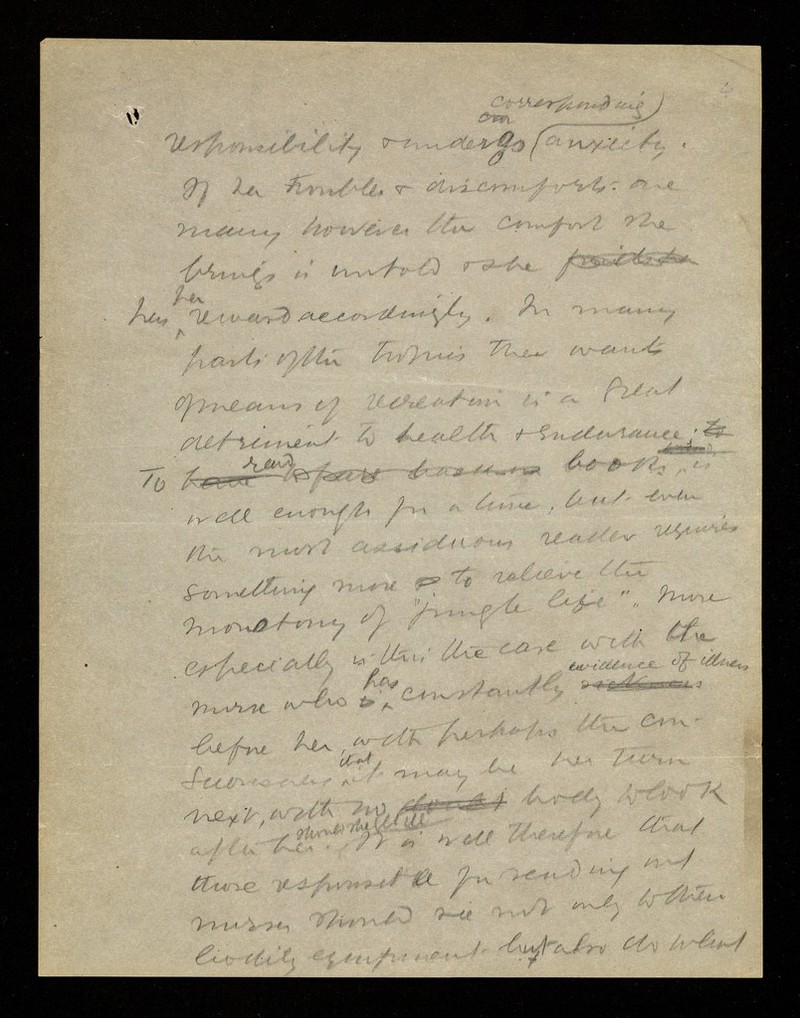 corresponding
responsibility & undergo anxiety.
If her troubles & discomforts are
many however the comfort she
brings is untold & she
has her reward accordingly. In many
parts of the tropics the want
of means of recreation is a great
detriment to health & endurance. to
To have read books is
well enough for a time, but even
the most assiduous reader requires
something more to relieve the
monotony of "jungle life". More
especially is this the case with the
evidence of illness
nurse who has constantly sickness
before her, with perhaps the con-
sciousness that it may be her turn
next, with no body to look
should she fall ill
after her. It is well therefore that
those responsible for sending out
nurses should see not only to their
bodily equipment but also do what